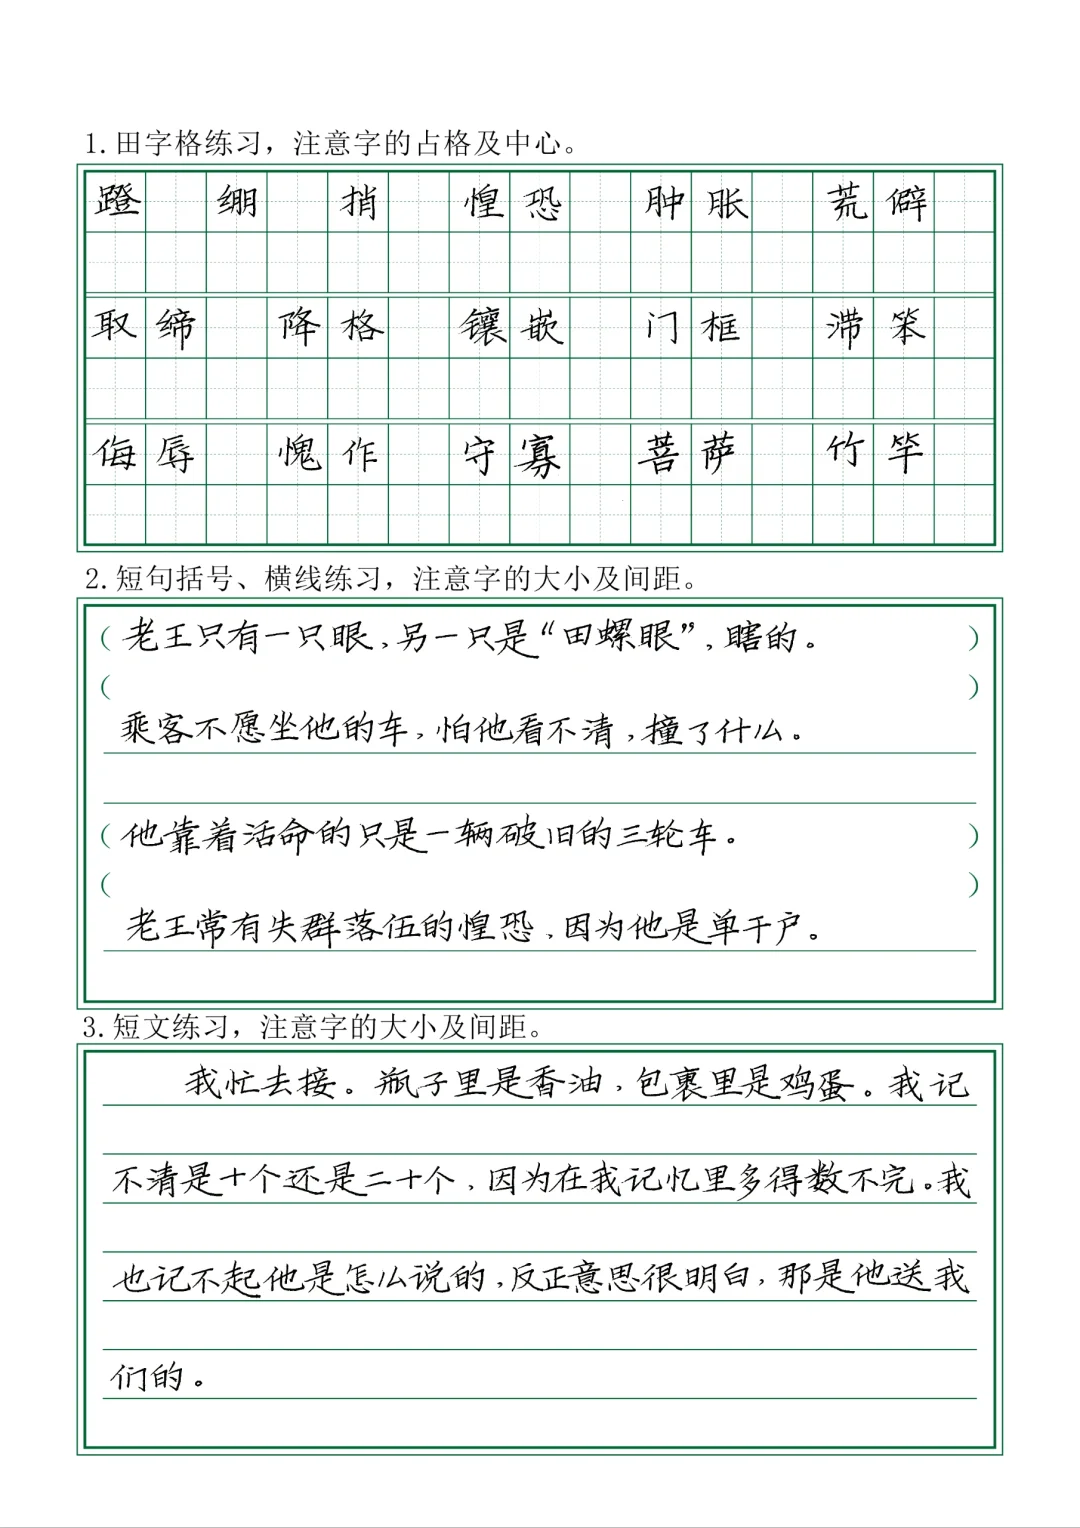 1.田字格练习，注意字的占格及中心。
蹬 绷 捎 惶恐 肿胀 荒僻
取缔 降格 镶嵌 门框 滞笨
侮辱 愧作 守寡 菩萨 竹竿
2.短句括号、横线练习，注意字的大小及间距。
（老王只有一只眼，另一只是“田螺眼”，瞎的。）
（ ）
乘客不愿坐他的车，怕他看不清，撞了什么。
（他靠着活命的只是一辆破旧的三轮车。）
（ ）
老王常有失群落伍的惶恐，因为他是单干户。
3.短文练习，注意字的大小及间距。
我忙去接。瓶子里是香油，包裹里是鸡蛋。我记
不清是十个还是二十个，因为在我记忆里多得数不完。我
也记不起他是怎么说的，反正意思很明白，那是他送我
们的。